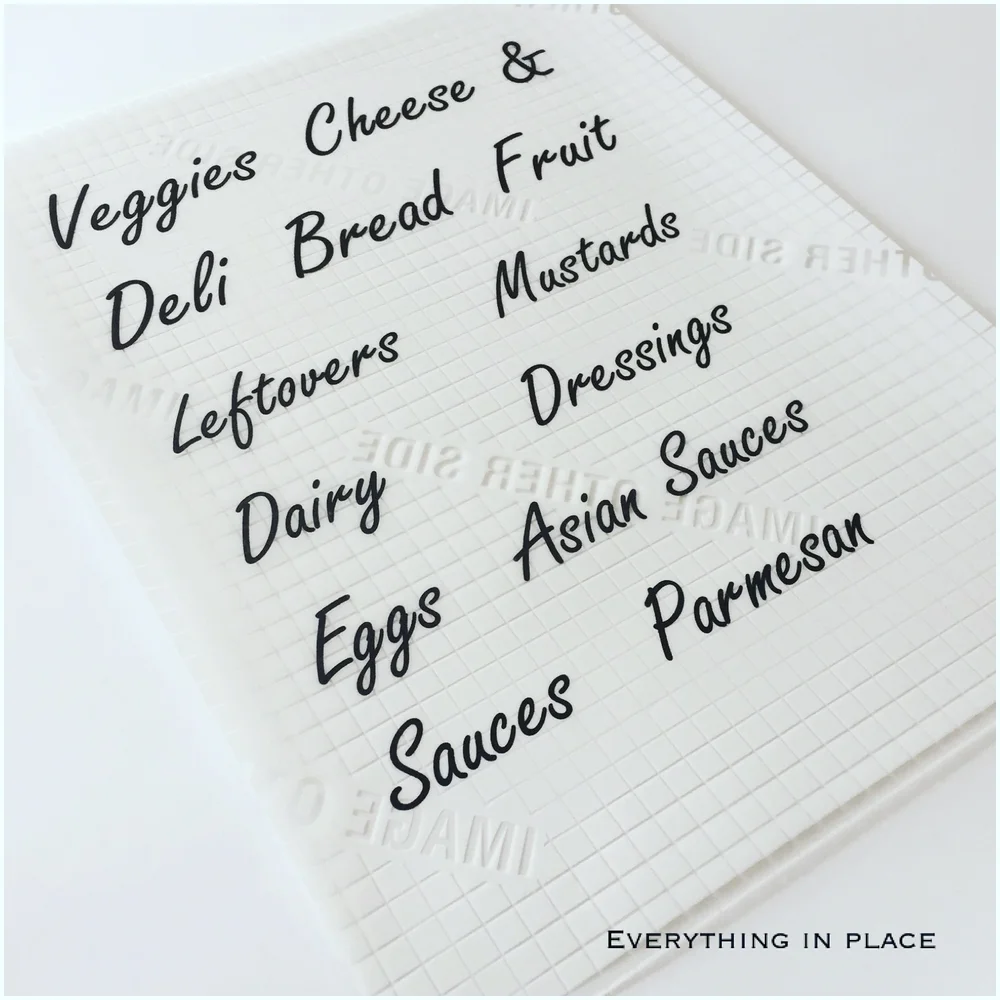 Veggies Cheese &
Deli Bread Fruit
Leftovers Mustards
Dairy Dressings
Eggs Asian Sauces
Sauces Parmesan
IMAGE OTHER SIDE
IMAGE OTHER SIDE
IMAGE OTHER SIDE
IMAGE O
EVERYTHING IN PLACE